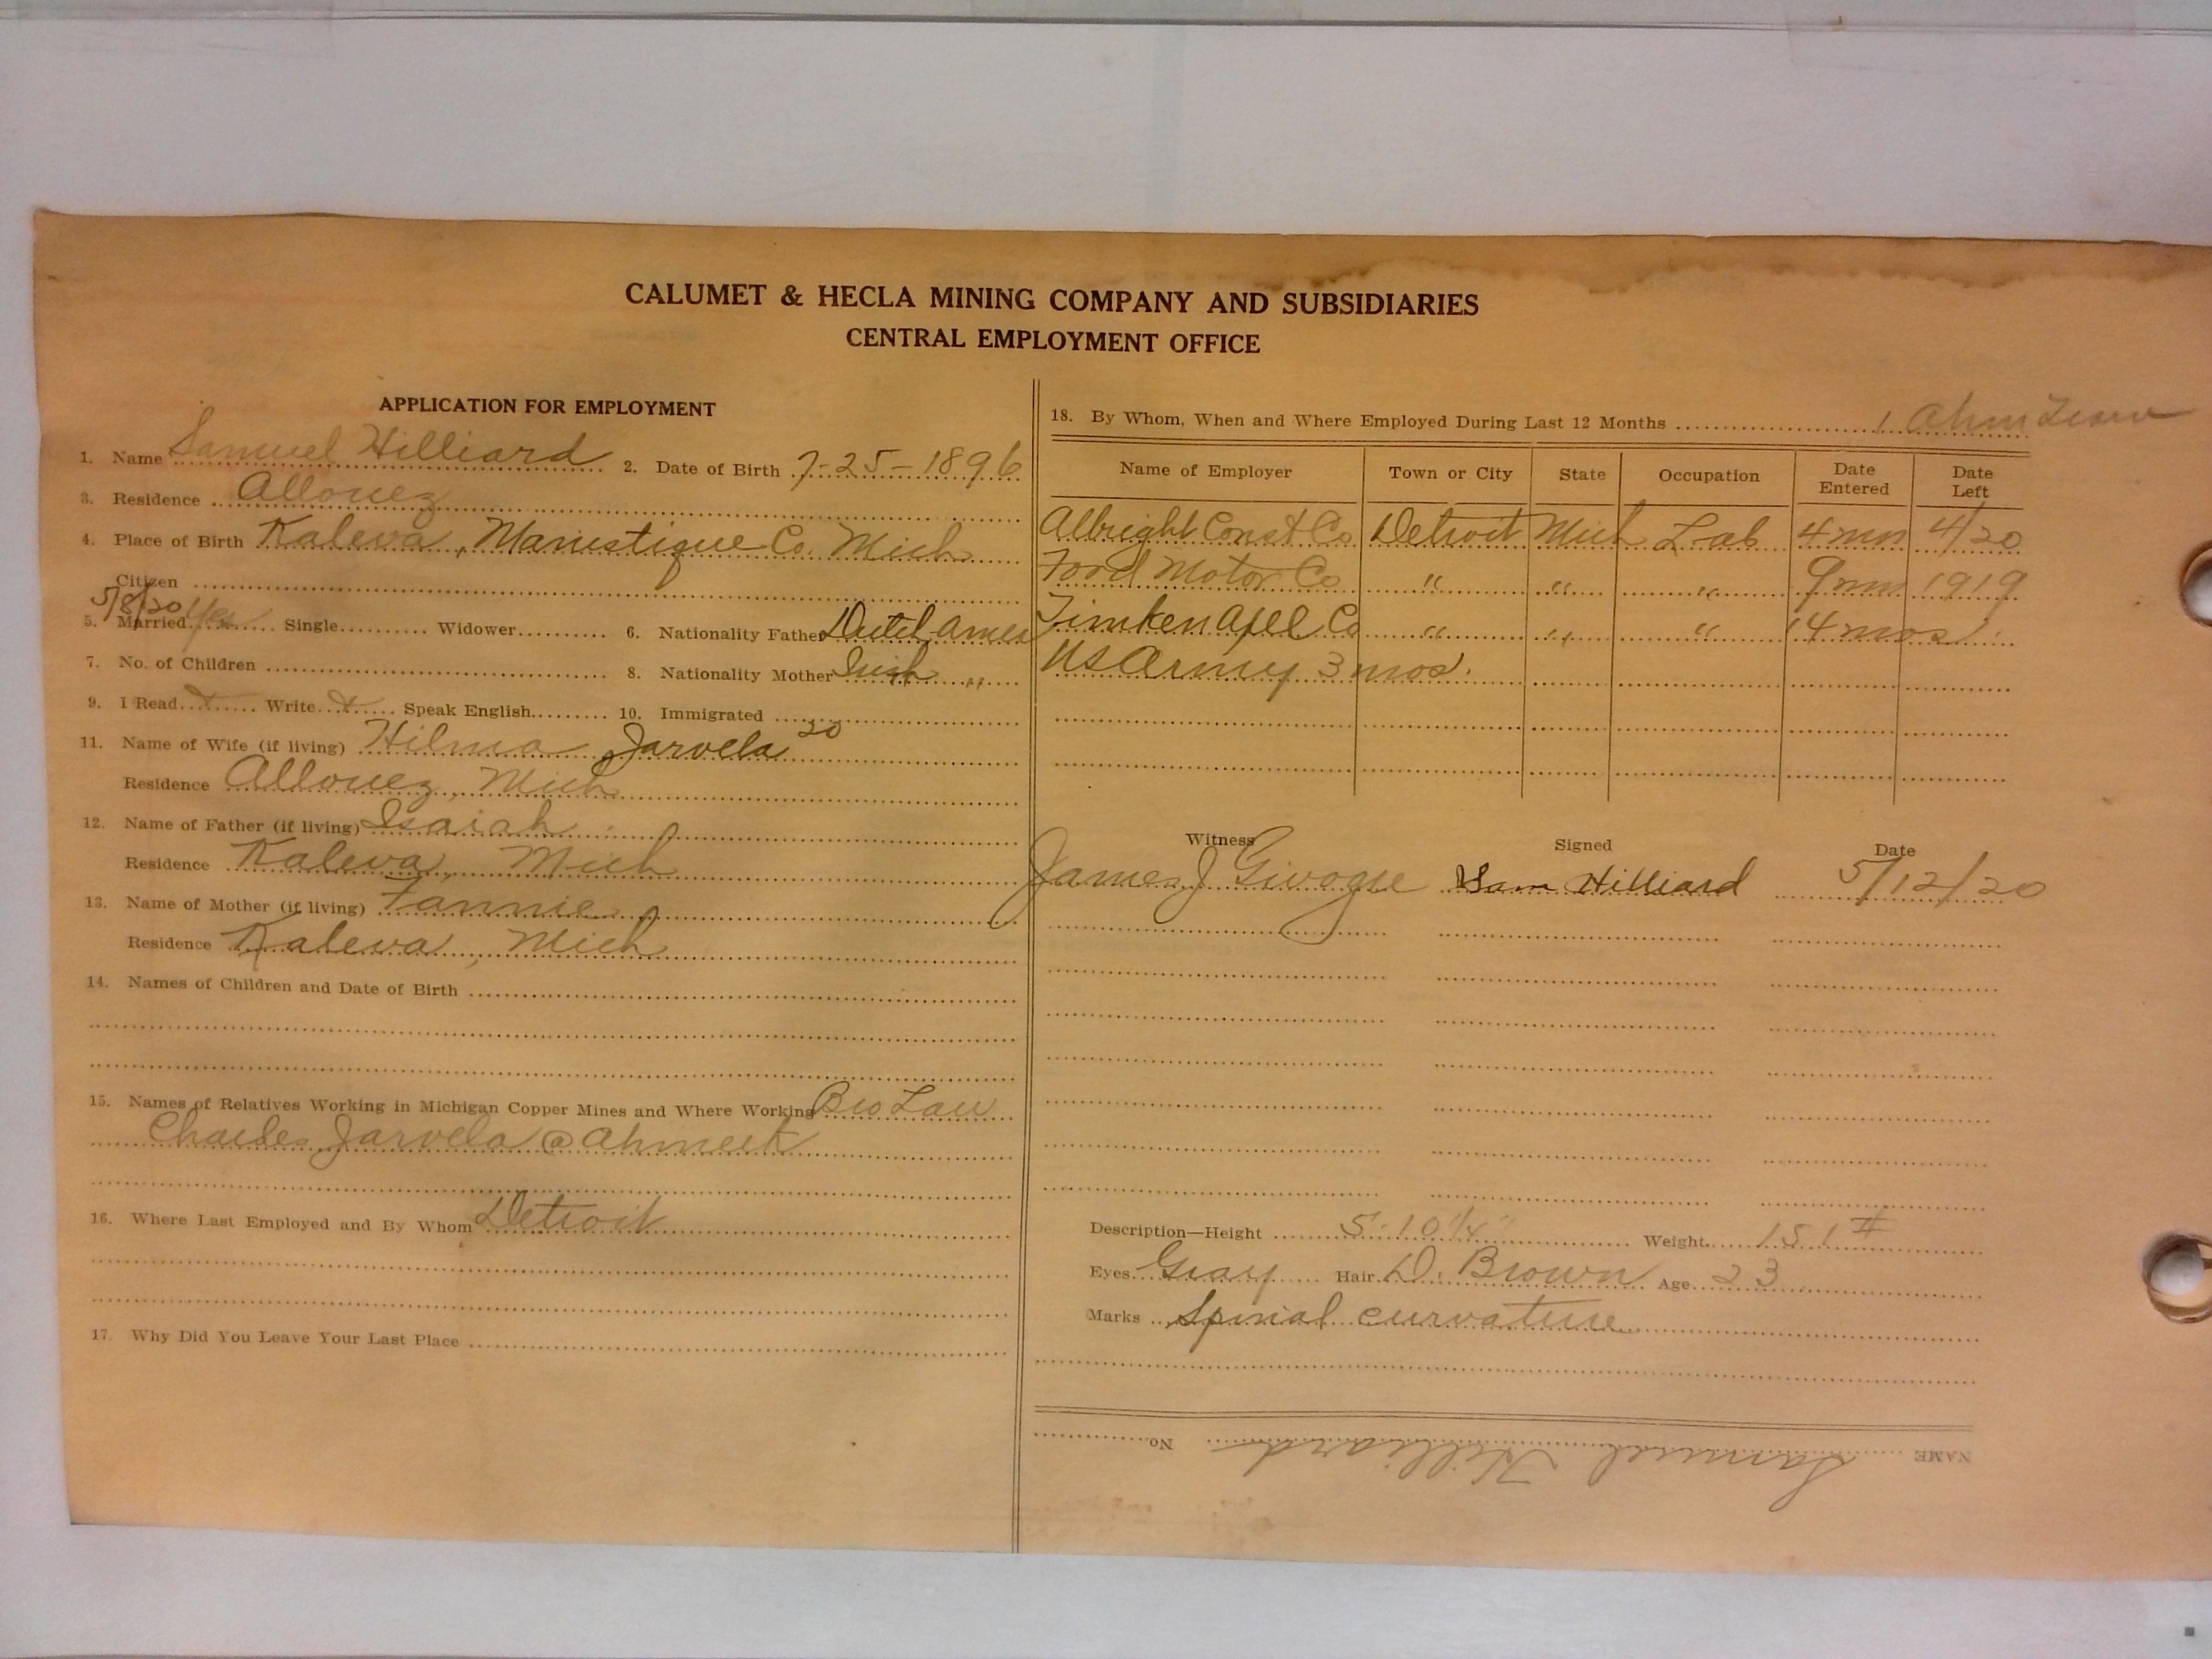 CALUMET & HECLA MINING COMPANY AND SUBSIDIARIES
CENTRAL EMPLOYMENT OFFICE
APPLICATION FOR EMPLOYMENT
1. Name Samuel Hilliard 2. Date of Birth 7-25-1896
3. Residence Allouez
4. Place of Birth Kaleva, Manistique Co. Mich
Citizen
5/8/20
5. Married Yes Single Widower 6. Nationality Father Dutch Amer
7. No. of Children 8. Nationality Mother Irish "
9. I Read x Write x Speak English 10. Immigrated
11. Name of Wife (if living) Hilma Jarvela 20
Residence Allouez, Mich
12. Name of Father (if living) Isaiah
Residence Kaleva, Mich
13. Name of Mother (if living) Fannie
Residence Kaleva, Mich
14. Names of Children and Date of Birth
15. Names of Relatives Working in Michigan Copper Mines and Where Working Bro Law
Charles Jarvela @ Ahmeek
16. Where Last Employed and By Whom Detroit
17. Why Did You Leave Your Last Place
18. By Whom, When and Where Employed During Last 12 Months 1 Ahm
Name of Employer Town or City State Occupation Date Entered Date Left
Albright Const Co Detroit Mich Lab 4 mos 4/20
Ford Motor Co " " " 9 mos 1919
Timken Axel Co " " " 4 mos
US Army 3 mos.
Witness Signed Date
James J Sam Hilliard 5/12/20
Description—Height 5' 10 1/4" Weight 151 #
Eyes Gray Hair D. Brown Age 23
Marks Spinal curvature
NAME Samuel Hilliard No.